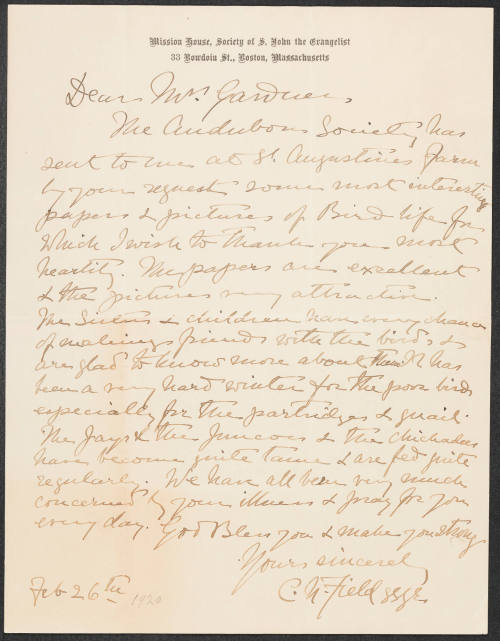 Mission House, Society of S. John the Evangelist
33 Bowdoin St., Boston, Massachusetts
Dear Mrs Gardner,
The Audubon Society has
sent to me at St. Augustine's Farm
by your request some most interesting
papers & pictures of Bird life for
which I wish to thank you most
heartily. The papers are excellent
& the pictures very attractive.
The Sisters & children have every chance
of making friends with the birds &
are glad to know more about them. It has
been a very hard winter for the poor birds
especially for the partridges & quail.
The Jays & the Juncos & the Chickadees
have become quite tame & are fed quite
regularly. We have all been very much
concerned by your illness & pray for you
every day. God Bless you & make you strong
Yours sincerely
C. N. Field SSJE
Feb 26th 1920